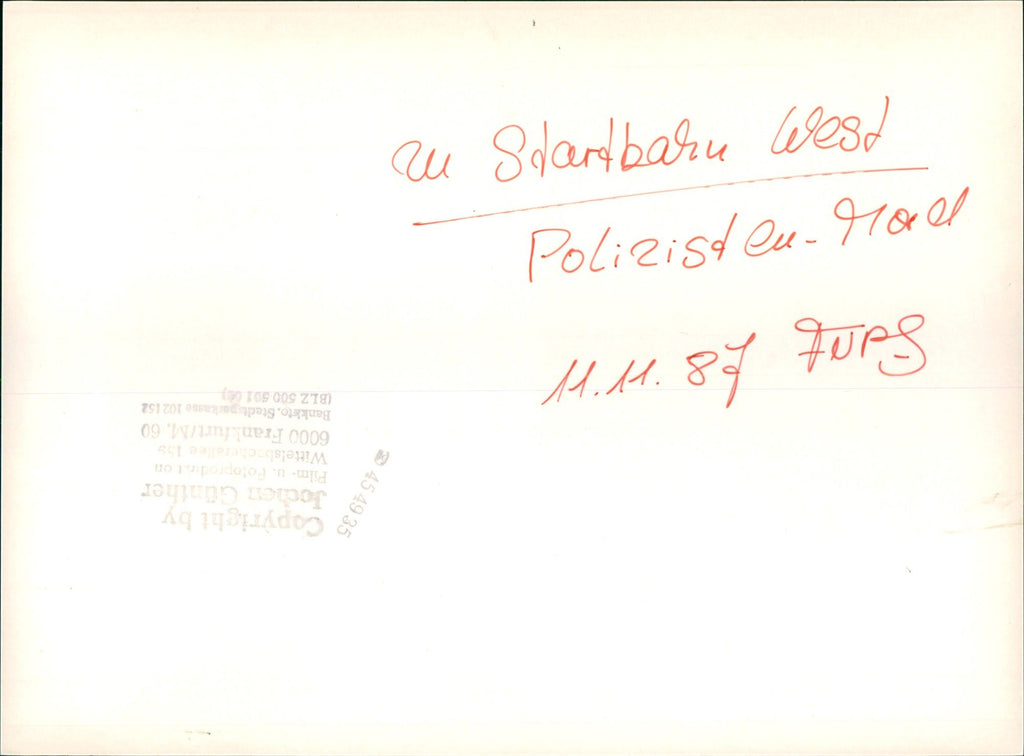 zu Startbahn West
Polizisten-Mord
11.11.87 FNPS
Copyright by
Jochen Günther
Film- u. Fotoproduktion
Wittelsbacherallee
6000 Frankfurt/M. 60
Bankkto. Stadtsparkasse 102152
(BLZ 500 501 02)
454935